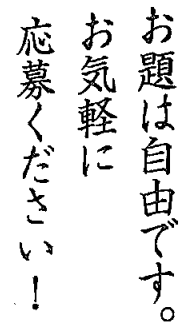 お題は自由です。
お気軽に
応募ください！